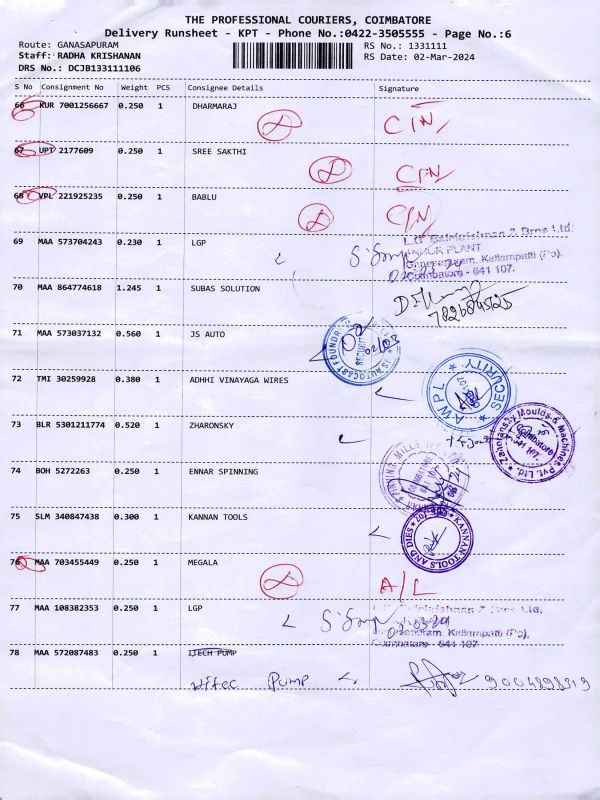 THE PROFESSIONAL COURIERS, COIMBATORE
Delivery Runsheet - KPT - Phone No.:0422-3505555 - Page No.:6
Route: GANASAPURAM RS No.: 1331111
Staff: RADHA KRISHANAN RS Date: 02-Mar-2024
DRS No.: DCJB133111106
S No Consignment No Weight PCS Consignee Details Signature
66 KUR 7001256667 0.250 1 DHARMARAJ
CIN
67 UPT 2177609 0.250 1 SREE SAKTHI
CIN
68 VPL 221925235 0.250 1 BABLU
CIN
69 MAA 573704243 0.230 1 LGP
L.G Balakrishnan & Bros Ltd.
PLANT
Kallampatti (Po),
Coimbatore - 641 107.
70 MAA 864774618 1.245 1 SUBAS SOLUTION
71 MAA 573037132 0.560 1 JS AUTO
JS AUTOCAST FOUNDRY
SECURITY
02/03
72 TMI 30259928 0.380 1 ADHHI VINAYAGA WIRES
AWPL ★ SECURITY ★
73 BLR 5301211774 0.520 1 ZHARONSKY
Moulds & Machines Pvt. Ltd.
Coimbatore
641 107.
74 BOH 5272263 0.250 1 ENNAR SPINNING
SPINNING MILLS
75 SLM 340847438 0.300 1 KANNAN TOOLS
★ KANNAN TOOLS AND DIES ★
76 MAA 703455449 0.250 1 MEGALA
A/L
77 MAA 108382353 0.250 1 LGP
Kallampatti (Po),
Coimbatore - 641 107
78 MAA 572087483 0.250 1 ITECH PUMP
Hitec Pump 9004898319